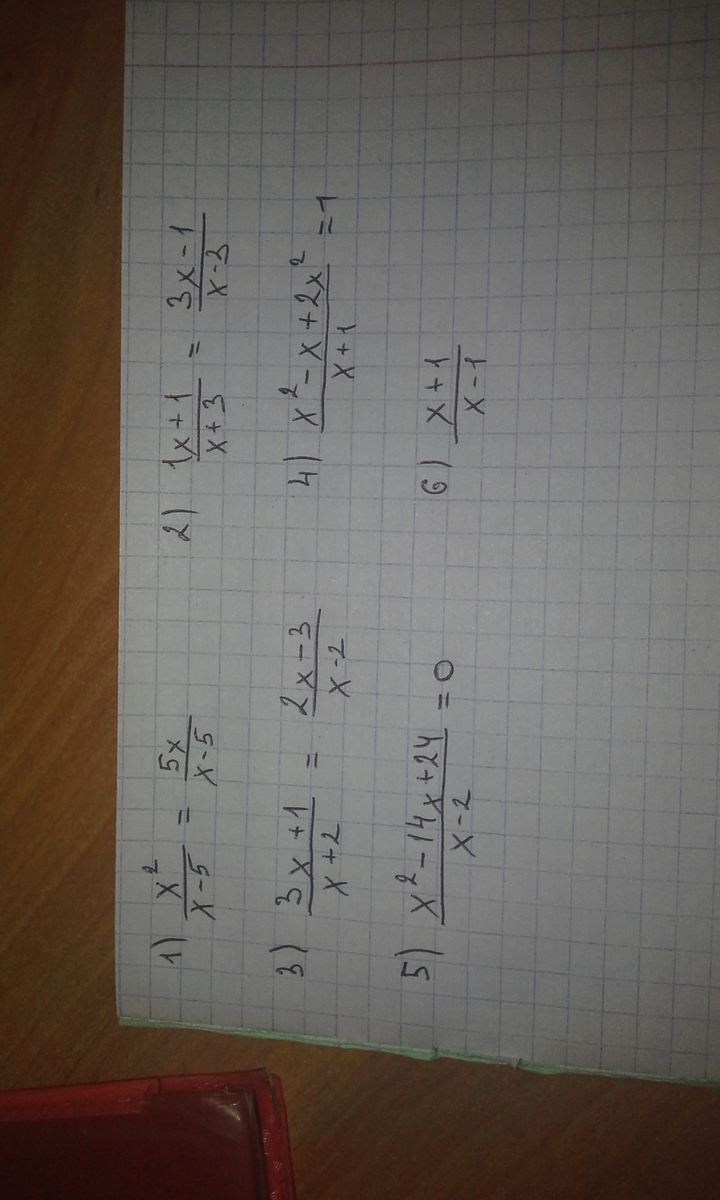 1) x²/(x-5) = 5x/(x-5) 2) (1x+1)/(x+3) = (3x-1)/(x-3)
3) (3x+1)/(x+2) = (2x-3)/(x-2) 4) (x²-x+2x²)/(x+1) = 1
5) (x²-14x+24)/(x-2) = 0 6) (x+1)/(x-1)